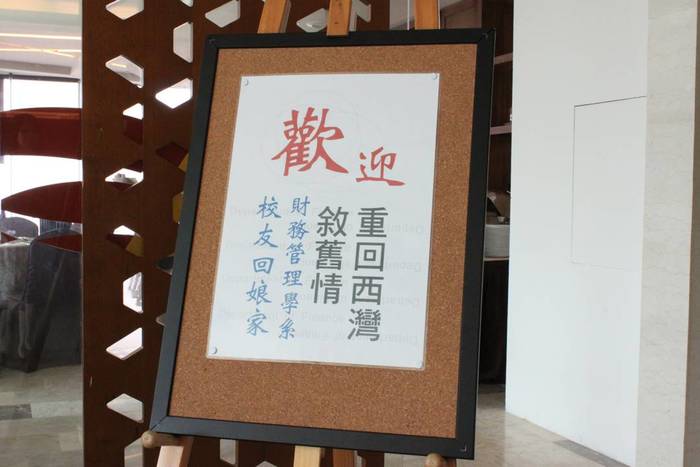 歡迎
重回西灣
敘舊情
財務管理學系
校友回娘家